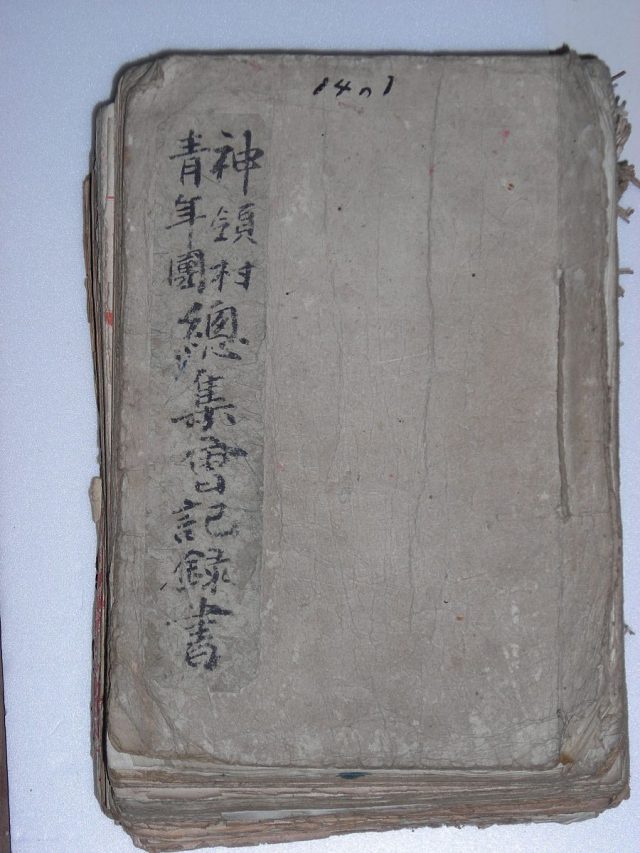 1401
神領村
青年團
總集會記録書